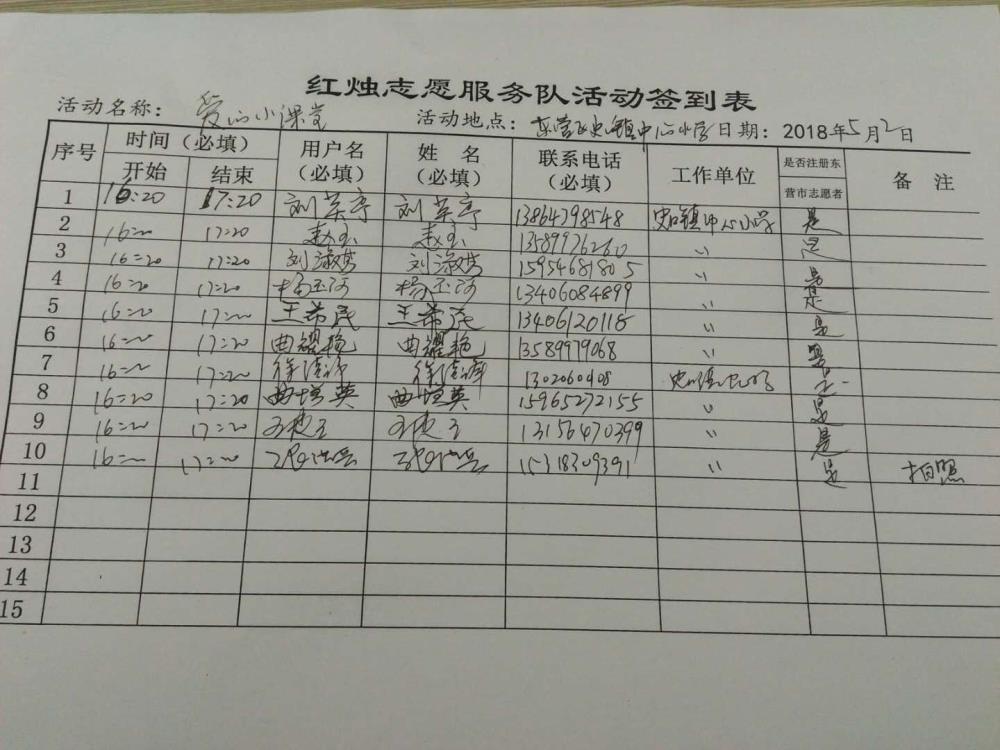 红烛志愿服务队活动签到表
活动名称： 爱心小课堂 活动地点： 东营区史口镇中心小学 日期： 2018年5月2日
序号 时间（必填） 用户名（必填） 姓 名（必填） 联系电话（必填） 工作单位 是否注册东营市志愿者 备 注
开始 结束
1 16:20 17:20 刘荣亭 刘荣亭 13864798548 史口镇中心小学 是
2 16:20 17:20 赵玉 赵玉 13589976260 〃 是
3 16:20 17:20 刘淑娟 刘淑娟 15954681805 〃 是
4 16:20 17:20 杨玉河 杨玉河 13406084899 〃 是
5 16:20 17:20 王希民 王希民 13406120118 〃 是
6 16:20 17:20 曲耀艳 曲耀艳 13589979068 〃 是
7 16:20 17:20 1302060408 是
8 16:20 17:20 曲增英 曲增英 15965272155 〃 是
9 16:20 17:20 13156470399 〃 是
10 16:20 17:20 15318309391 〃 是 拍照
11
12
13
14
15